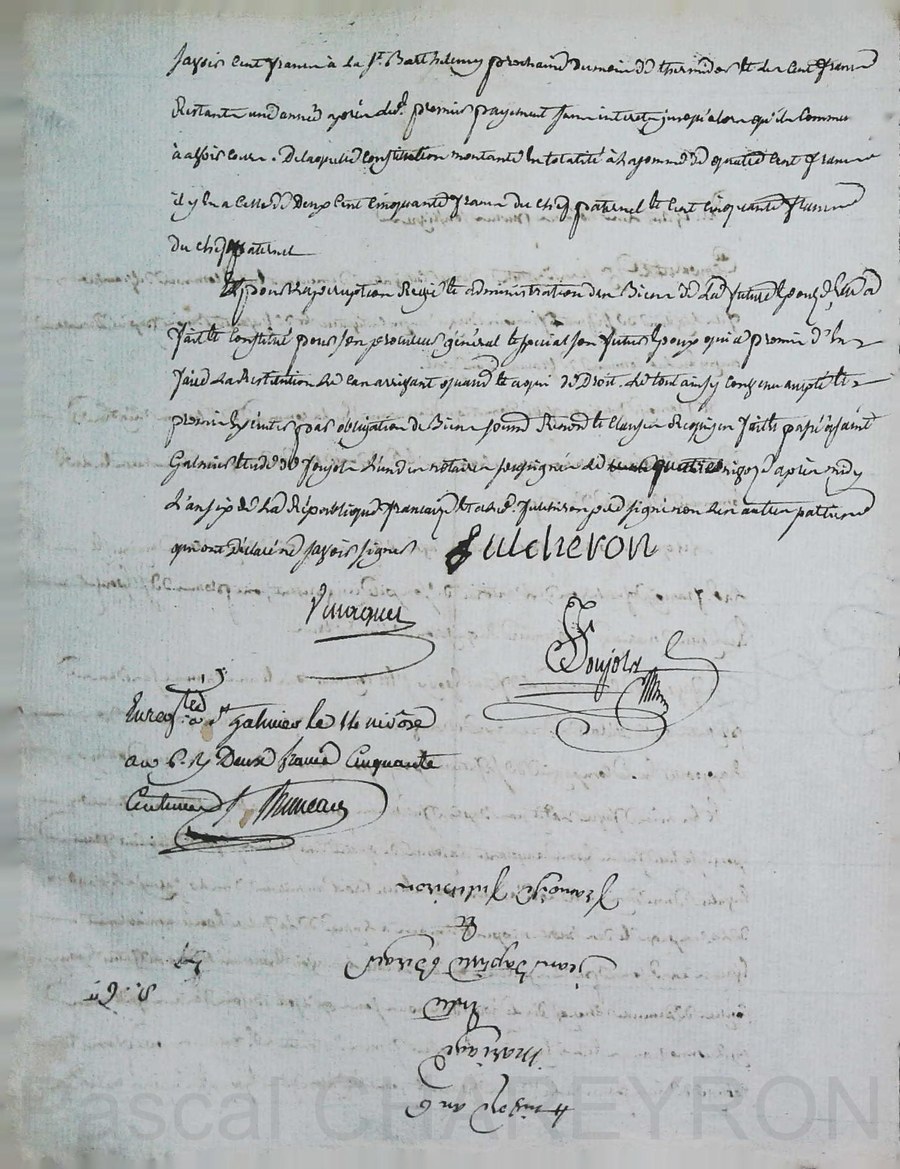 Savoir cent francs à la St. Barthelemy prochaine du mois de thermidor et les cent francs
Restants une année après led. premier payement sans interets jusqu'alors qu'ils commenc
à avoir cours. De laquelle constitution montante en totalité à la somme de quatre cent francs
il y en a celle de Deux cent cinquante francs du chef paternel et cent cinquante francs
du chef maternel
Et pour la perception Regie et administration des Biens de lad. future Epouse, elle a
fait et constitué pour son procureur général et special son futur Epoux qui a promis d'en
faire la Restitution le cas arrivant quand et a qui de Droit. Le tout ainsy convenu accepté et
promis Exécuter par obligation de Biens soumis Renonc. et clauses Requises fait et passé à saint
Galmier Etude de Joujols l'un des notaires soussignés le quatre nivose après midy
L'an six de La République française et a led. fulchiron pere signé non les autres parties
qui ont Déclaré ne savoir signer fulcheron
Joujols
Enregtré à St galmier le 14 nivôse
an 6. Deux francs Cinquante
Centimes
4 nivose an 6
Mariage
Entre
Jean Baptiste
&
françoise fulchiron